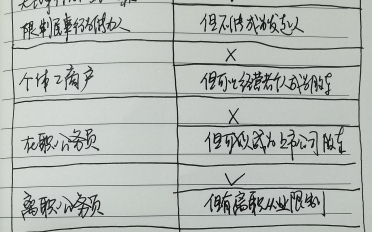 限制民事行为能力人
但不能成为发起人
×
个体工商户
但可以经营者个人成为股东
×
在职公务员
但可以成为上市公司股东
✓
离职公务员
但有离职从业限制